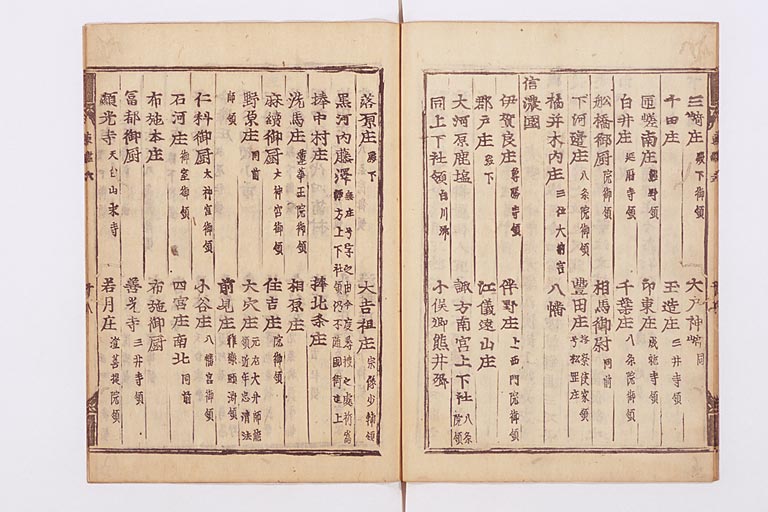 三崎庄 殿下御領 大戸神崎 同
千田庄 玉造庄 三井寺領
匝瑳南庄 熊野領 印東庄 成就寺領
白井庄 延暦寺領 千葉庄 八条院御領
船橋御厨 院御領 相馬御厨 同前
下河邊庄 八条院御領 豊田庄
橘并木内庄 二位大納言 八幡
信濃國
伊賀良庄 尊勝寺領 伴野庄 上西門院御領
郡戸庄 殿下 江儀遠山庄
大河原鹿塩 諏方南宮上下社 八条院領
同上下社領 白川郷 小俣郷熊井郷
落原庄 殿下 大吉祖庄 宗像少輔領
黒河内藤澤
棒中村庄 棒北条庄
洗馬庄 蓮華王院御領 相原庄
麻績御厨 大神宮御領 住吉庄 院御領
野原庄 同前 大穴庄
前見庄 雅楽頭済領
仁科御厨 大神宮御領 小谷庄 八幡宮御領
石河庄 御室御領 四宮庄南北 同前
布施本庄 布施御厨
富都御厨 善光寺 三井寺領
顕光寺 天台山末寺 若月庄 證菩提院領